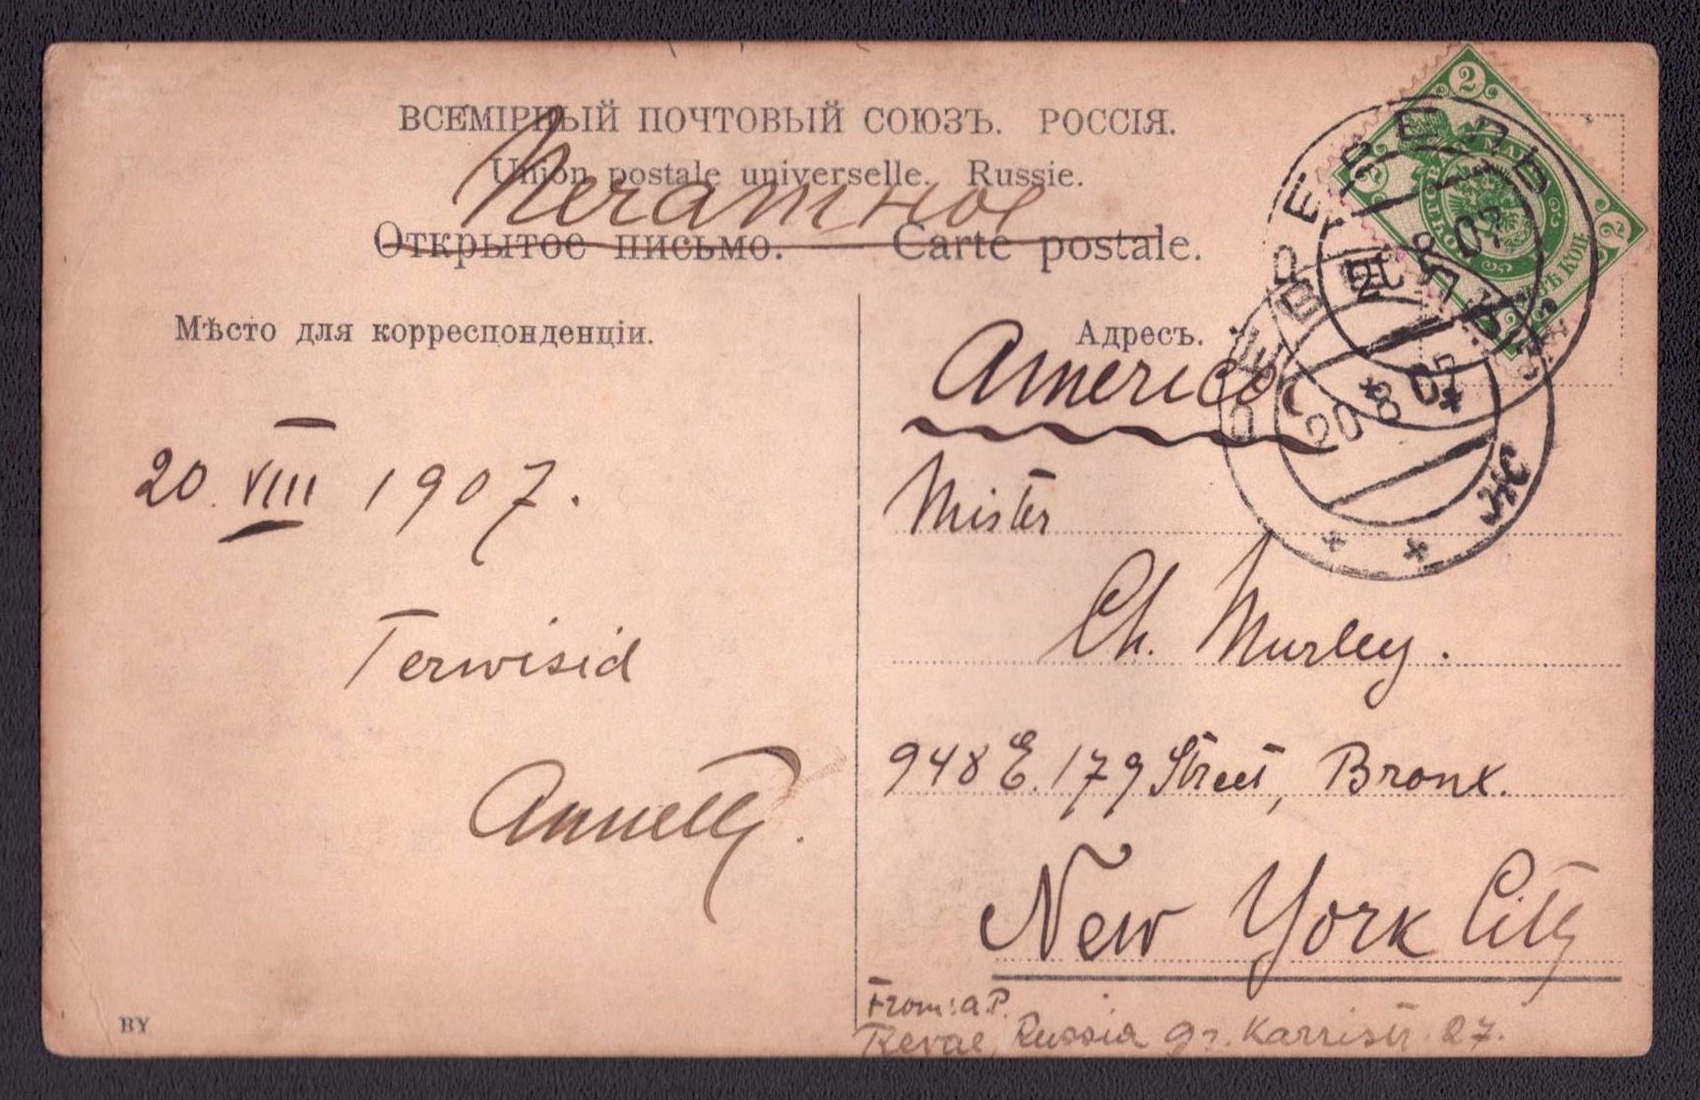 ВСЕМІРНЫЙ ПОЧТОВЫЙ СОЮЗЪ. РОССІЯ.
Union postale universelle. Russie.
Печатное
Открытое письмо. Carte postale.
Мѣсто для корреспонденціи.
Адресъ.
20. VIII 1907.
Terwisid
Annette.
BY
America
Mister
Ch. Murley.
948 E. 179 Street, Bronx.
New York City
From: a. P.
Reval, Russia gr. Karristr. 27.
РЕВЕЛЬ
20 8 07
РЕВЕЛЬ
20 8 07
Ж
2
2
2
2